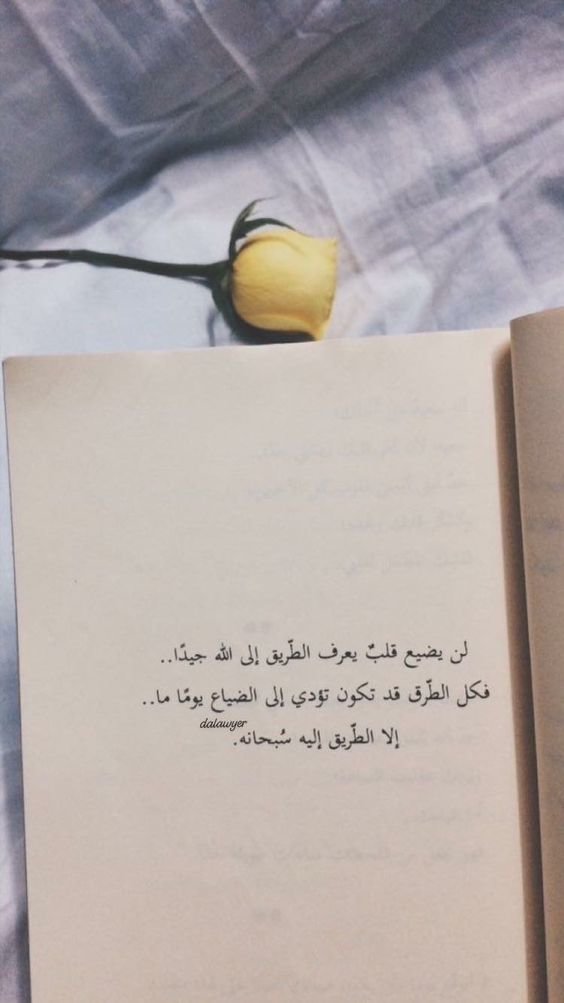 لن يضيع قلبٌ يعرف الطّريق إلى الله جيدًا..
فكل الطّرق قد تكون تؤدي إلى الضياع يومًا ما..
dalawyer
إلا الطّريق إليه سُبحانه.